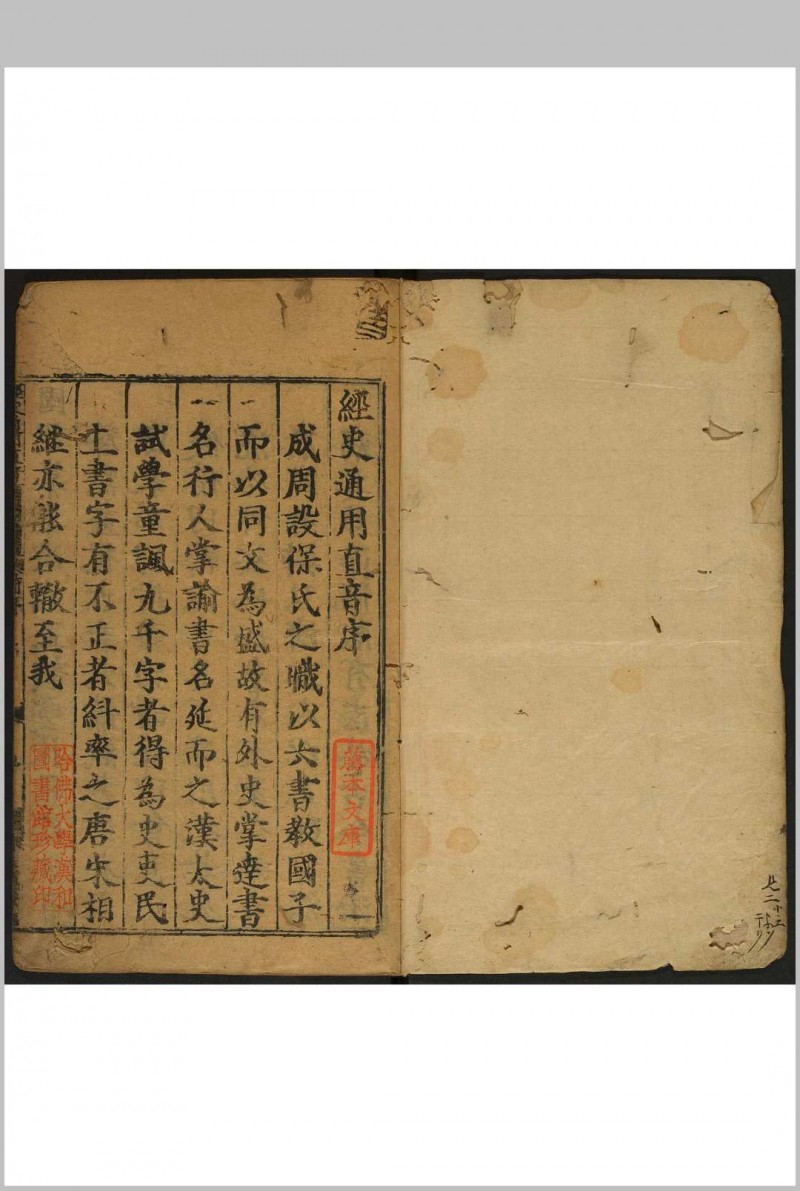 經史通用直音序
成周設保氏之職以六書教國子
而以同文為盛故有外史掌達書
名行人掌諭書名延而之漢太史
試學童諷九千字者得為史吏民
上書字有不正者糾率之唐宋相
繼亦能合轍至我
藤本文庫
哈佛大學漢和
圖書館珍藏印